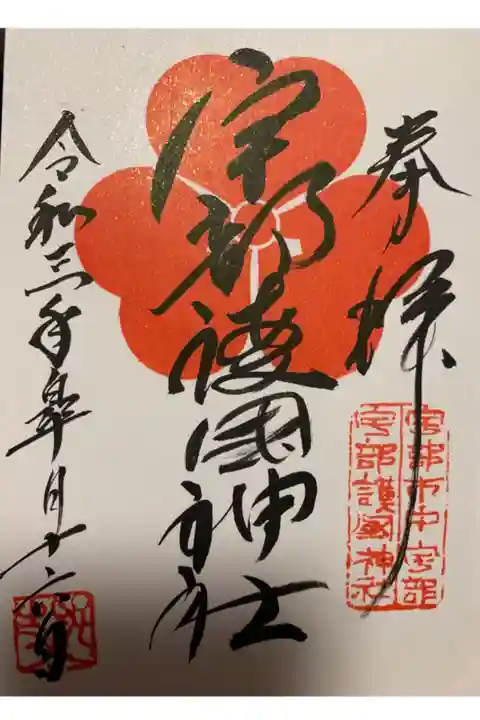 奉拝
宇部市中宇部
宇部護國神社
宇部護國神社
令和三年皐月十六日